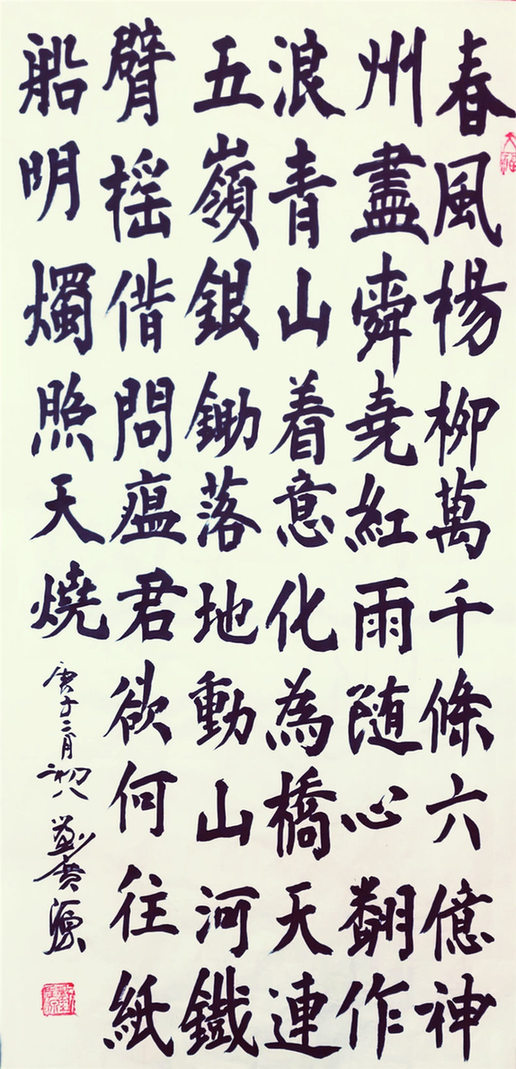 春風楊柳萬千條六億神
州盡舜堯紅雨随心翻作
浪青山着意化為橋天連
五嶺銀鋤落地動山河鐵
臂摇偕問瘟君欲何往紙
船明燭照天燒
庚子二月初八劉廣源